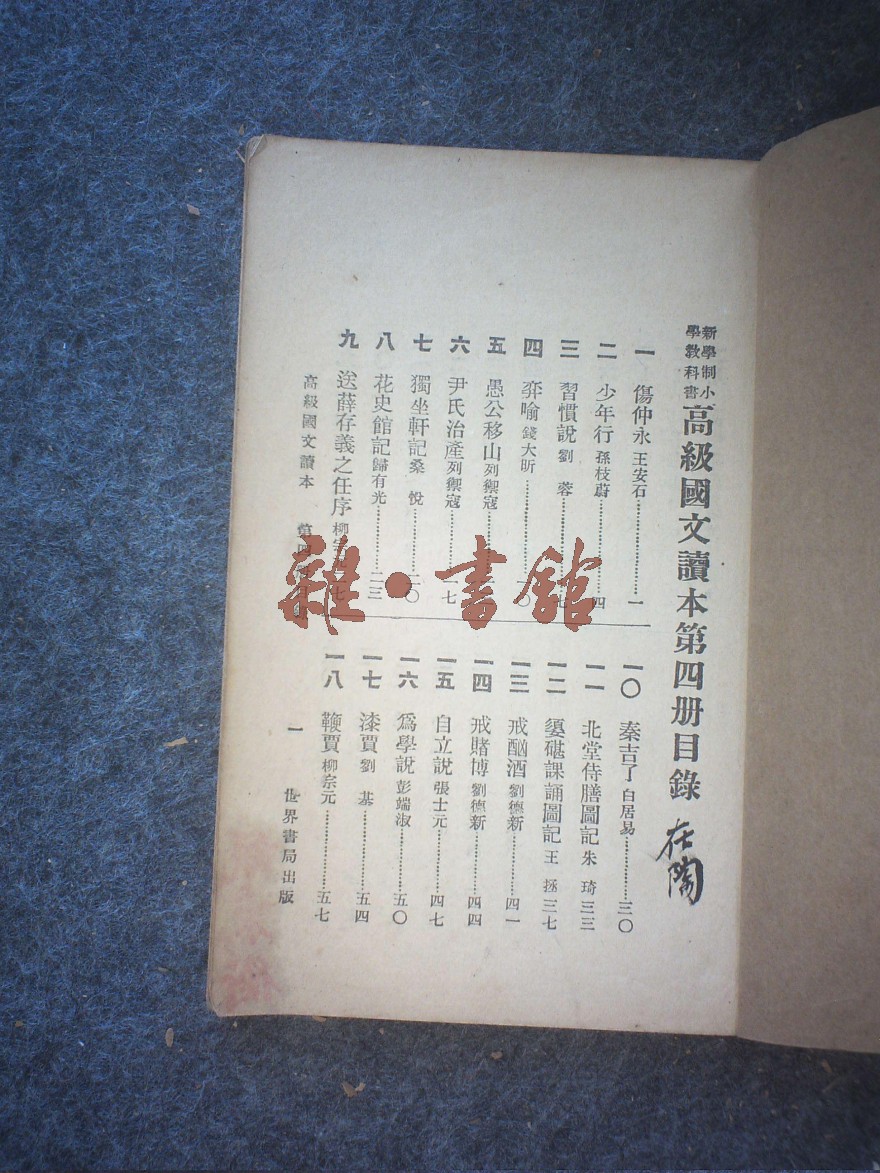 新學制小
學教科書
高級國文讀本第四册目錄
在陶
一 傷仲永 王安石…………一
二 少年行 孫枝蔚…………四
三 習慣說 劉蓉…………七
四 弈喻 錢大昕…………一〇
五 愚公移山 列禦寇…………
六 尹氏治產 列禦寇…………一七
七 獨坐軒記 桑悅…………二〇
八 花史館記 歸有光…………二三
九 送薛存義之任序 柳宗元 二七
一〇 秦吉了 白居易…………三〇
一一 北堂侍膳圖記 朱琦 三三
一二 媭碪課誦圖記 王拯 三七
一三 戒酗酒 劉德新…………四一
一四 戒賭博 劉德新…………四四
一五 自立說 張士元…………四七
一六 爲學說 彭端淑…………五〇
一七 漆賈 劉基…………五四
一八 鞭賈 柳宗元…………五七
高級國文讀本 第四册目錄
一 世界書局出版
雜·書館